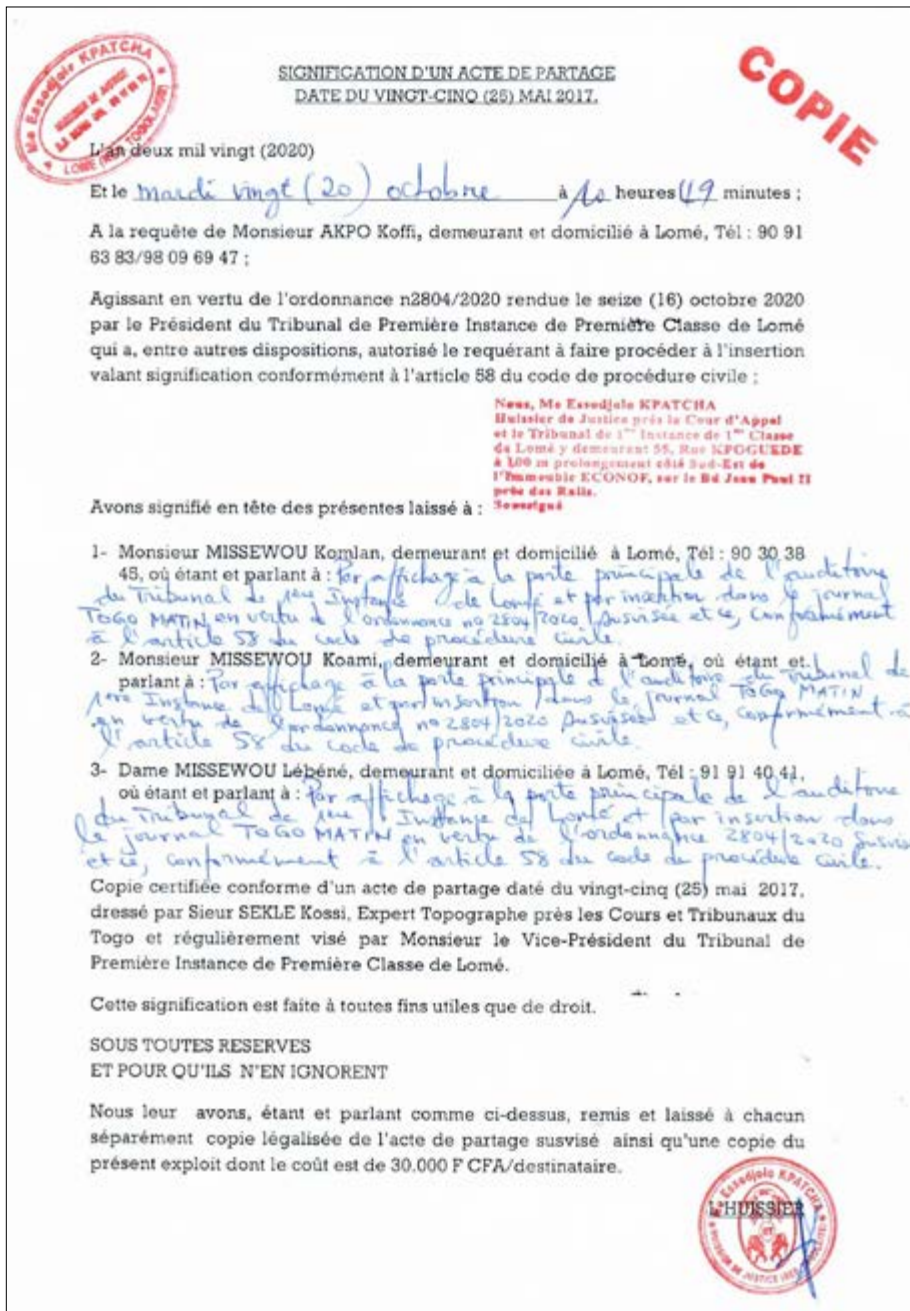 Me Essodjolo KPATCHA
HUISSIER DE JUSTICE
LOME (TOGO)
COPIE
SIGNIFICATION D'UN ACTE DE PARTAGE
DATE DU VINGT-CINQ (25) MAI 2017.
L'an deux mil vingt (2020)
Et le mardi vingt (20) octobre à 10 heures 49 minutes ;
A la requête de Monsieur AKPO Koffi, demeurant et domicilié à Lomé, Tél : 90 91
63 83/98 09 69 47 ;
Agissant en vertu de l'ordonnance n2804/2020 rendue le seize (16) octobre 2020
par le Président du Tribunal de Première Instance de Première Classe de Lomé
qui a, entre autres dispositions, autorisé le requérant à faire procéder à l'insertion
valant signification conformément à l'article 58 du code de procédure civile ;
Nous, Me Essodjolo KPATCHA
Huissier de Justice près la Cour d'Appel
et le Tribunal de 1ère Instance de 1ère Classe
de Lomé y demeurant 55, Rue KPOGUEDE
à 100 m prolongement côté Sud-Est de
l'Immeuble ECONOF, sur le Bd Jean Paul II
près des Rails.
Soussigné
Avons signifié en tête des présentes laissé à :
1- Monsieur MISSEWOU Komlan, demeurant et domicilié à Lomé, Tél : 90 30 38
45, où étant et parlant à : Par affichage à la porte principale de l'auditoire
du Tribunal de 1ère Instance de Lomé et par insertion dans le journal
TOGO MATIN en vertu de l'ordonnance no 2804/2020 susvisée et ce, conformément
à l'article 58 du code de procédure civile.
2- Monsieur MISSEWOU Koami, demeurant et domicilié à Lomé, où étant et
parlant à : Par affichage à la porte principale de l'auditoire du Tribunal de
1ère Instance de Lomé et par insertion dans le journal TOGO MATIN
en vertu de l'ordonnance no 2804/2020 susvisée et ce, conformément à
l'article 58 du code de procédure civile.
3- Dame MISSEWOU Lébéné, demeurant et domiciliée à Lomé, Tél : 91 91 40 41,
où étant et parlant à : Par affichage à la porte principale de l'auditoire
du Tribunal de 1ère Instance de Lomé et par insertion dans
le journal TOGO MATIN en vertu de l'ordonnance 2804/2020 susvisée
et ce, conformément à l'article 58 du code de procédure civile.
Copie certifiée conforme d'un acte de partage daté du vingt-cinq (25) mai 2017,
dressé par Sieur SEKLE Kossi, Expert Topographe près les Cours et Tribunaux du
Togo et régulièrement visé par Monsieur le Vice-Président du Tribunal de
Première Instance de Première Classe de Lomé.
Cette signification est faite à toutes fins utiles que de droit.
SOUS TOUTES RESERVES
ET POUR QU'ILS N'EN IGNORENT
Nous leur avons, étant et parlant comme ci-dessus, remis et laissé à chacun
séparément copie légalisée de l'acte de partage susvisé ainsi qu'une copie du
présent exploit dont le coût est de 30.000 F CFA/destinataire.
L'HUISSIER
Me Essodjolo KPATCHA